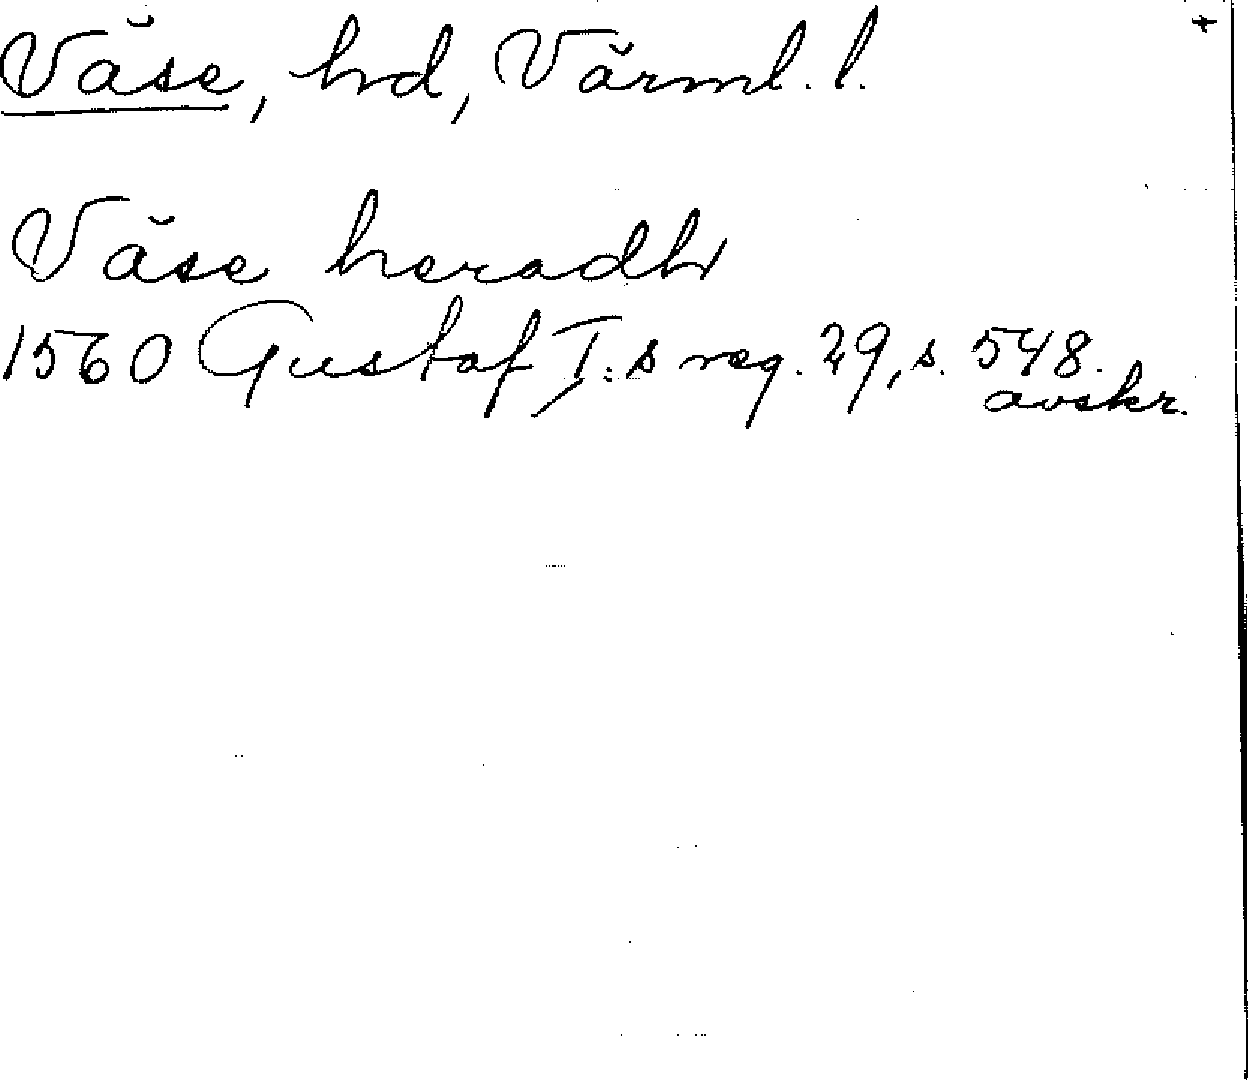 Väse, hd, Värml. l.
Väse heradh
1560 Gustaf I:s reg. 29, s. 548.
avskr.